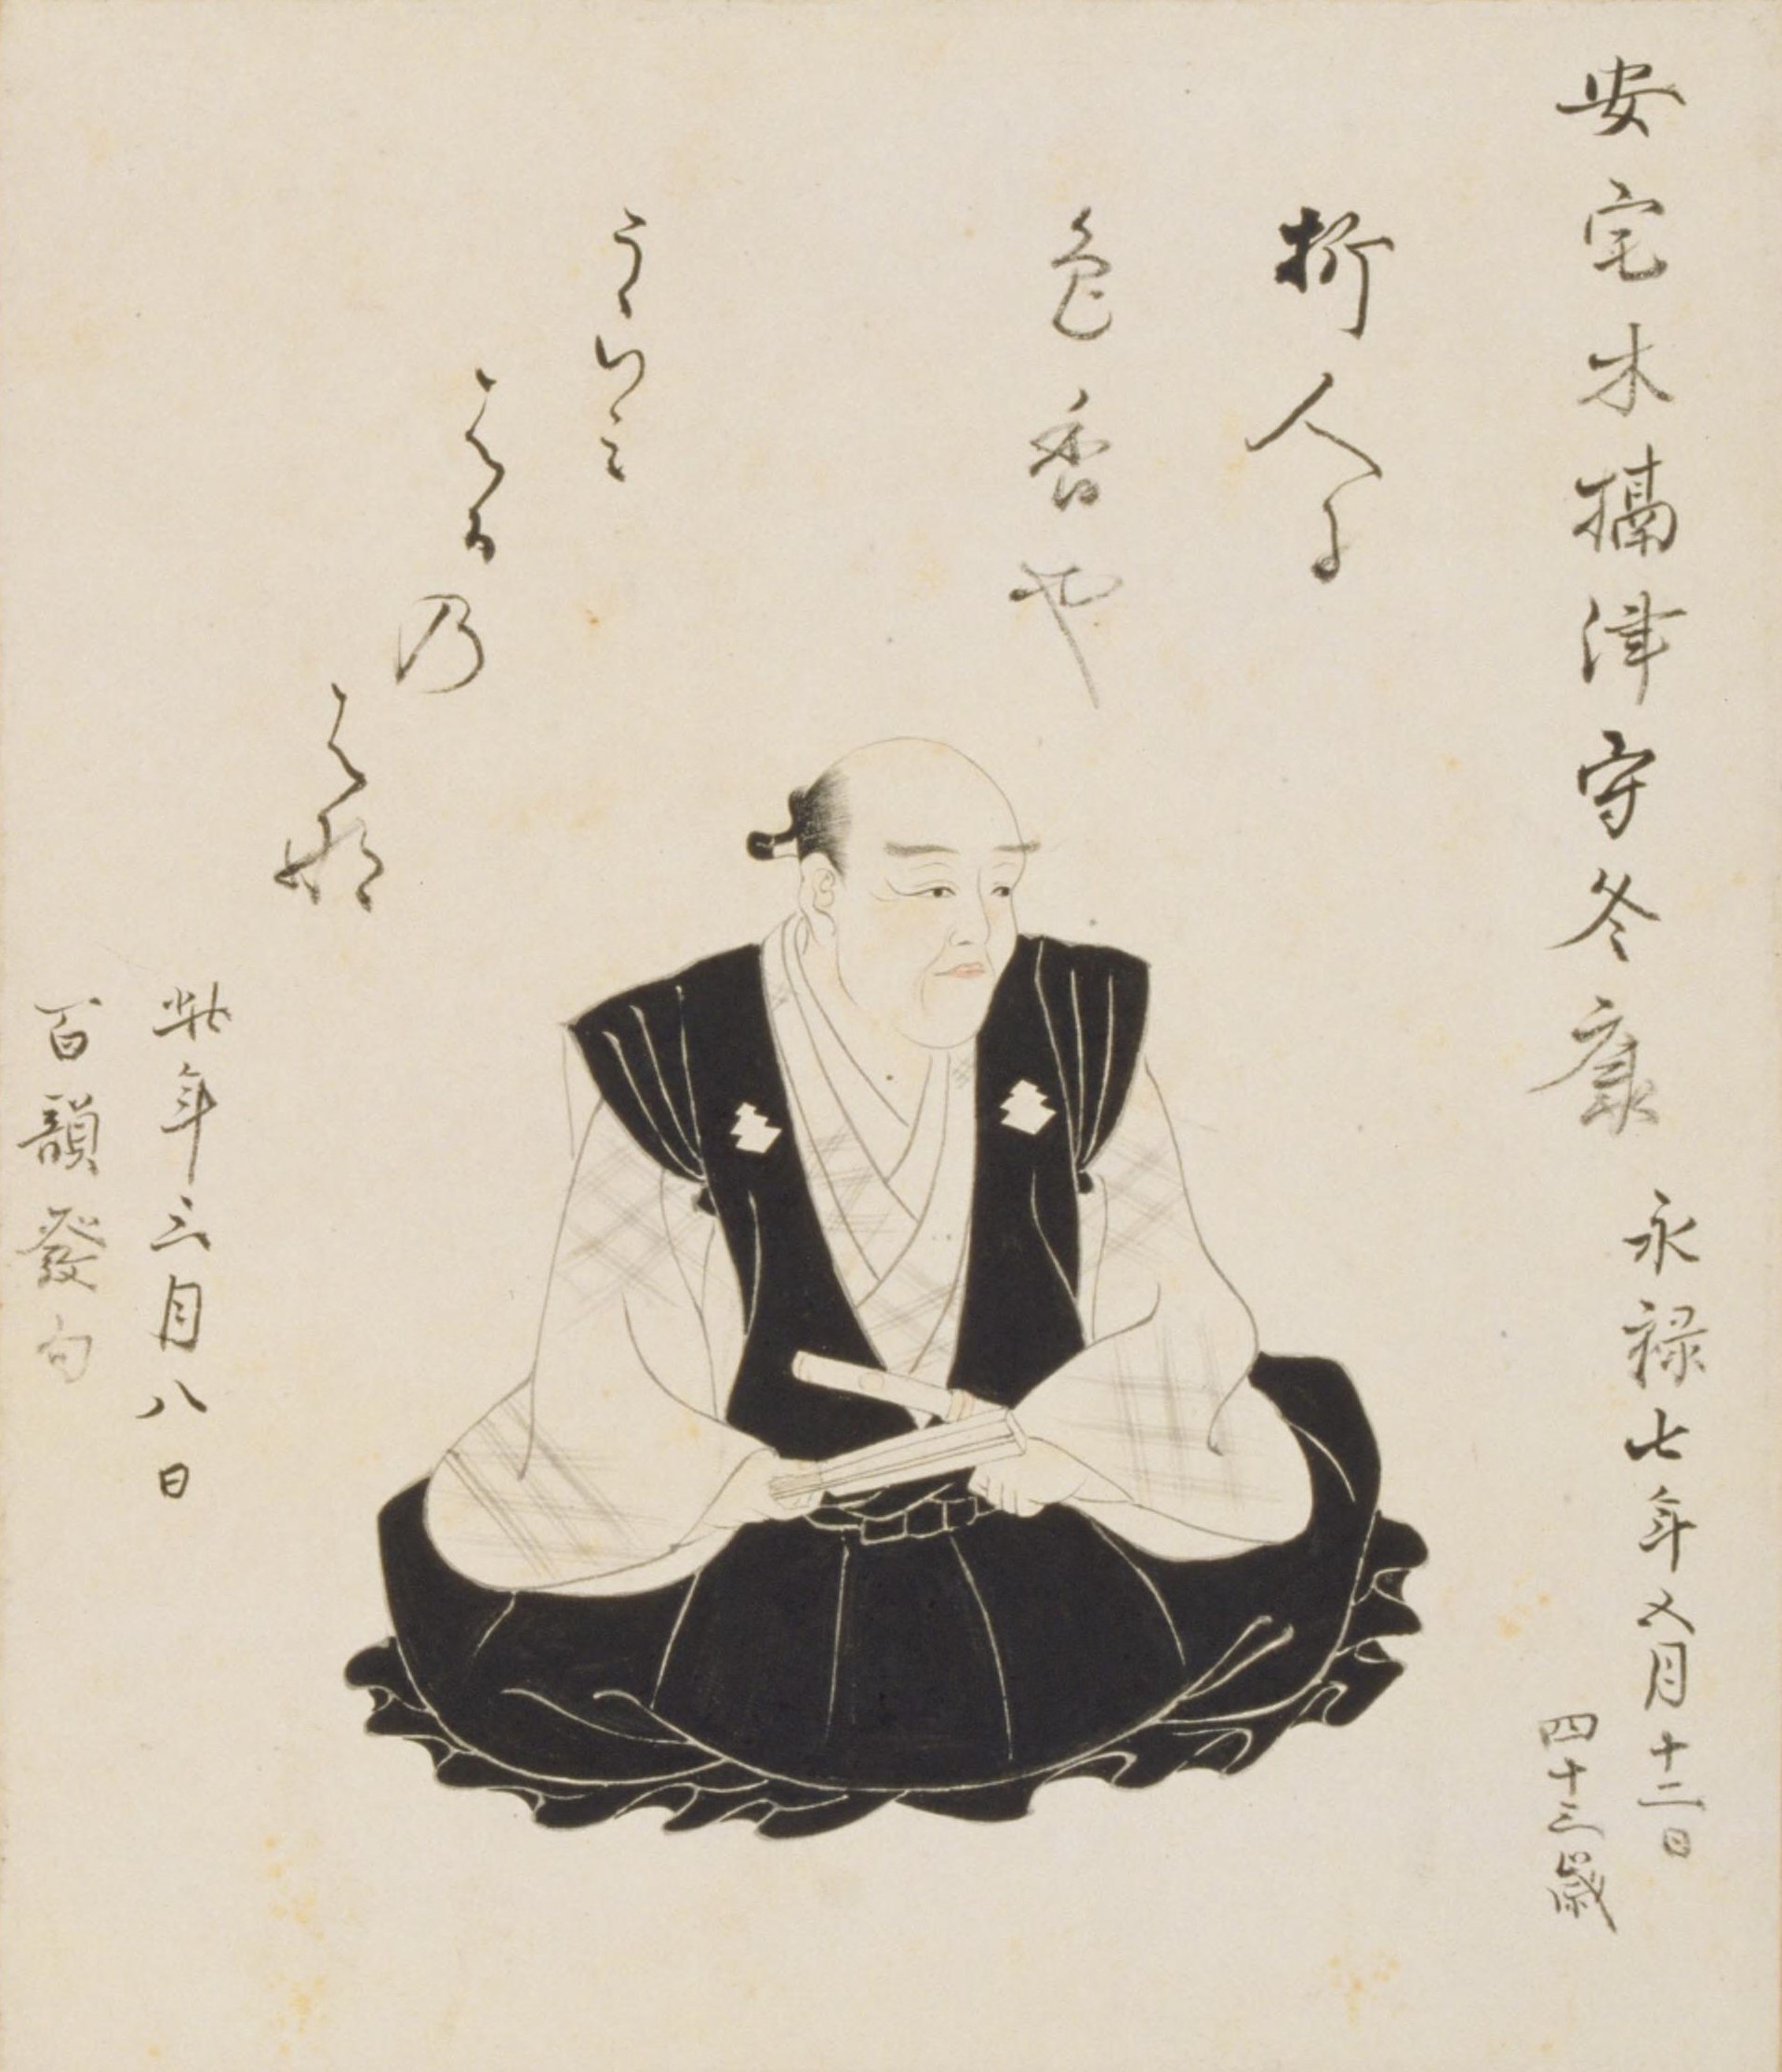 安宅木摂津守冬康
永禄七年五月十二日
四十三歳
折人に
色香や
うらミ
はる乃
はな
此年三月八日
百韻發句